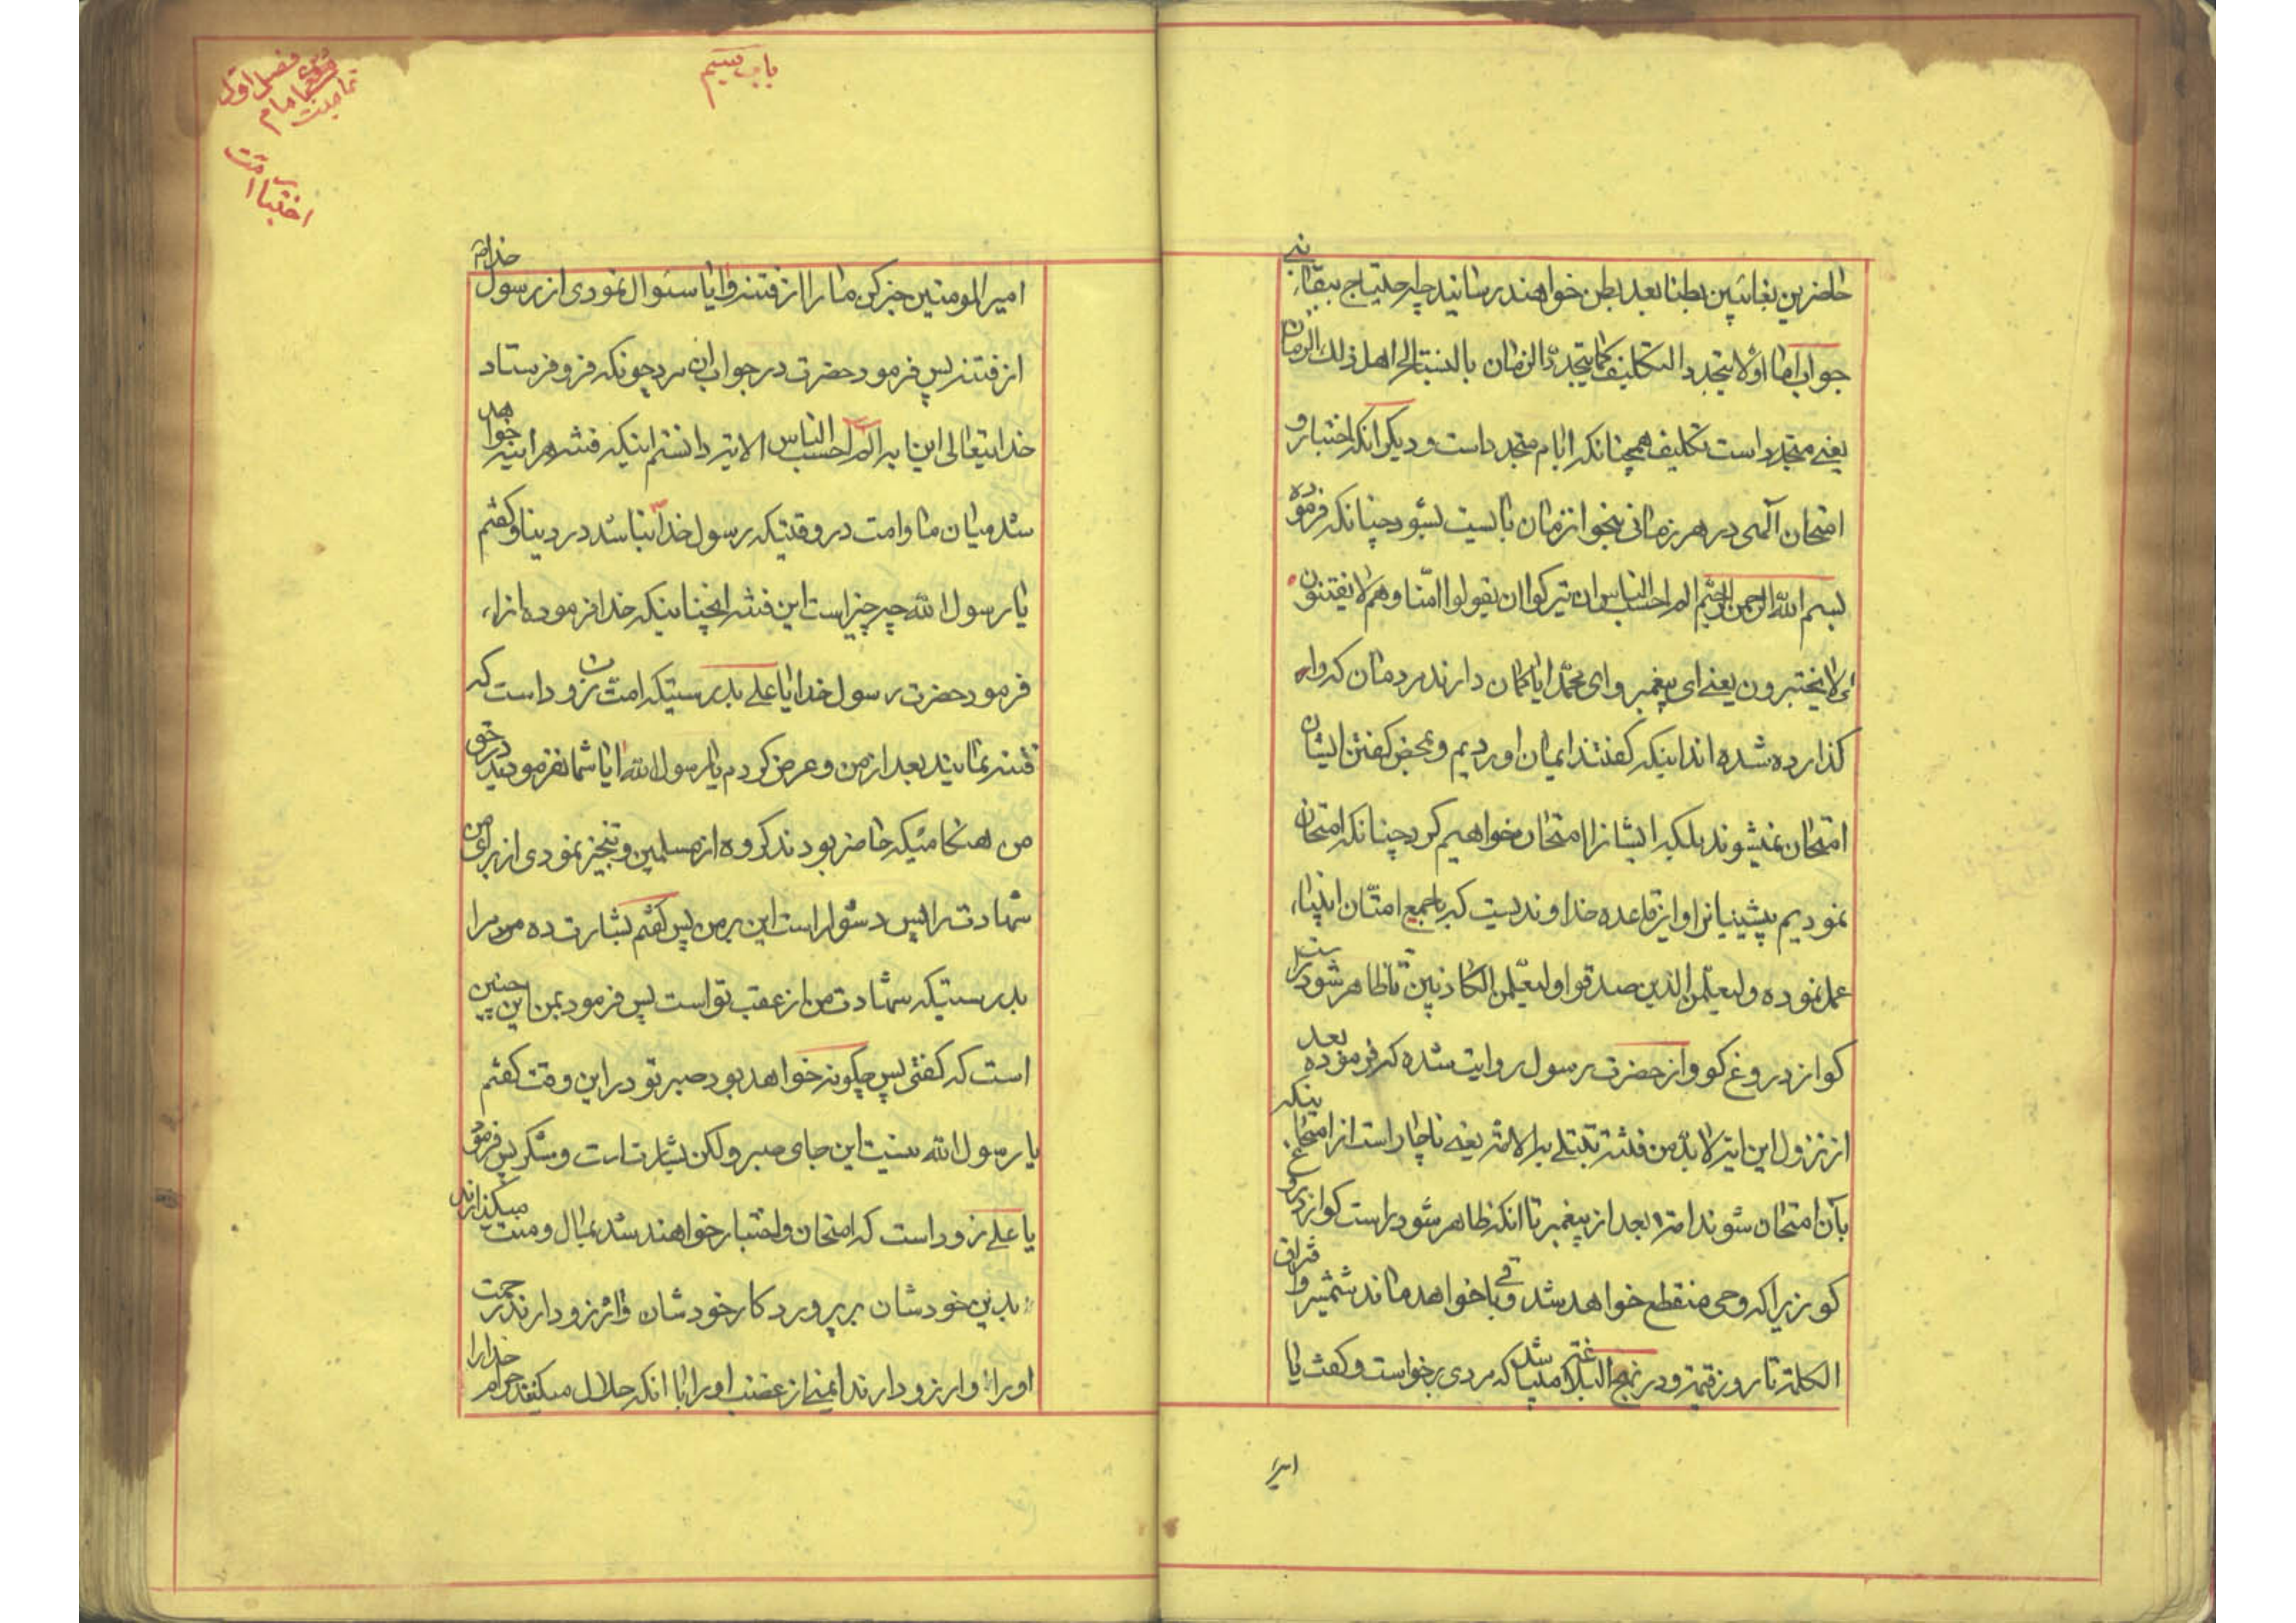 حاضرین بغائبین بطنا بعد بطن خواهند رسانید چه احتیاج ببقاء نبی
جواب اما اولا یتجدد التکلیف کما یتجدد الزمان بالنسبة الی اهل ذلك الزمان
یعنی متجدد است تکلیف همچنانکه ایام متجدد است و دیگر انکه اختبار و
امتحان آلهی در هر زمانی بنحو از زمان بایست بشود چنانکه فرموده
بسم الله الرحمن الرحیم الم احسب الناس ان یترکوا ان یقولوا امنا و هم لا یفتنون
ای لا یختبرون یعنی ای پیغمبر و ای محمد ایا کمان دارند مردمان که وا
کذارده شده اند اینکه کفتند ایمان اوردیم و بمحض کفتن ایشان
امتحان نمیشوند بلکه ایشانرا امتحان خواهیم کرد چنانکه امتحان
نمودیم پیشینیانرا و این قاعده خداوندیست که با جمیع امتان انبیاء
عمل نموده ولیعلمن الذین صدقوا ولیعلمن الکاذبین تا ظاهر شود راست
کو از دروغ کو و از حضرت رسول روایت شده که فرموده بعد
از نزول این ایه لابد من فتنة تبتلی به الامة یعنی ناچار است از امتحان اینکه
بآن امتحان شوند امت بعد از پیغمبر تا انکه ظاهر شود راست کو از دروغ
کو زیرا که وحی منقطع خواهد شد و باقی خواهد ماند شمشیر و افتراق
الکلمة تا روز قیمة و در نهج البلاغة میباشد که مردی برخواست و کفت یا
امیر
باب سیم
فصل اول
امام
اختبار امت
امیر المومنین خبر کن ما را از فتنه و ایا سئوال نمودی از رسول خدا
از فتنه پس فرمود حضرت در جواب ان مرد چونکه فرو فرستاد
خدایتعالی این ایه الم احسب الناس الایة دانستم اینکه فتنه هر اینه خواهد
شد میان ما و امت در وقتیکه رسول خدا نباشد در دنیا و کفتم
یا رسول الله چه چیز است این فتنه انچنانیکه خدا فرموده انرا،
فرمود حضرت رسول خدا یا علی بدرستیکه امت من زود است که
فتنه نمایند بعد از من و عرض کردم یا رسول الله ایا شما نفرمودید در حق
من هنکامیکه حاضر بودند کروه از مسلمین و تنجیز نمودی از برای من
شهادت را پس دشوار است این بر من پس کفتم بشارت ده مر مرا
بدرستیکه شهادت من از عقب تو است پس فرمود بمن این چنین
است که کفتی پس چکونه خواهد بود صبر تو در این وقت کفتم
یا رسول الله نیست این جای صبر و لکن بشارتست و شکر پس فرمود
یا علی زود است که امتحان و اختبار خواهند شد بمال و منت میکذارند
بدین خودشان بر پروردکار خودشان و ارزو دارند رحمت
اورا و ارزو دارند ایمنی از غضب اورا با انکه حلال میکنند حرام خدا را